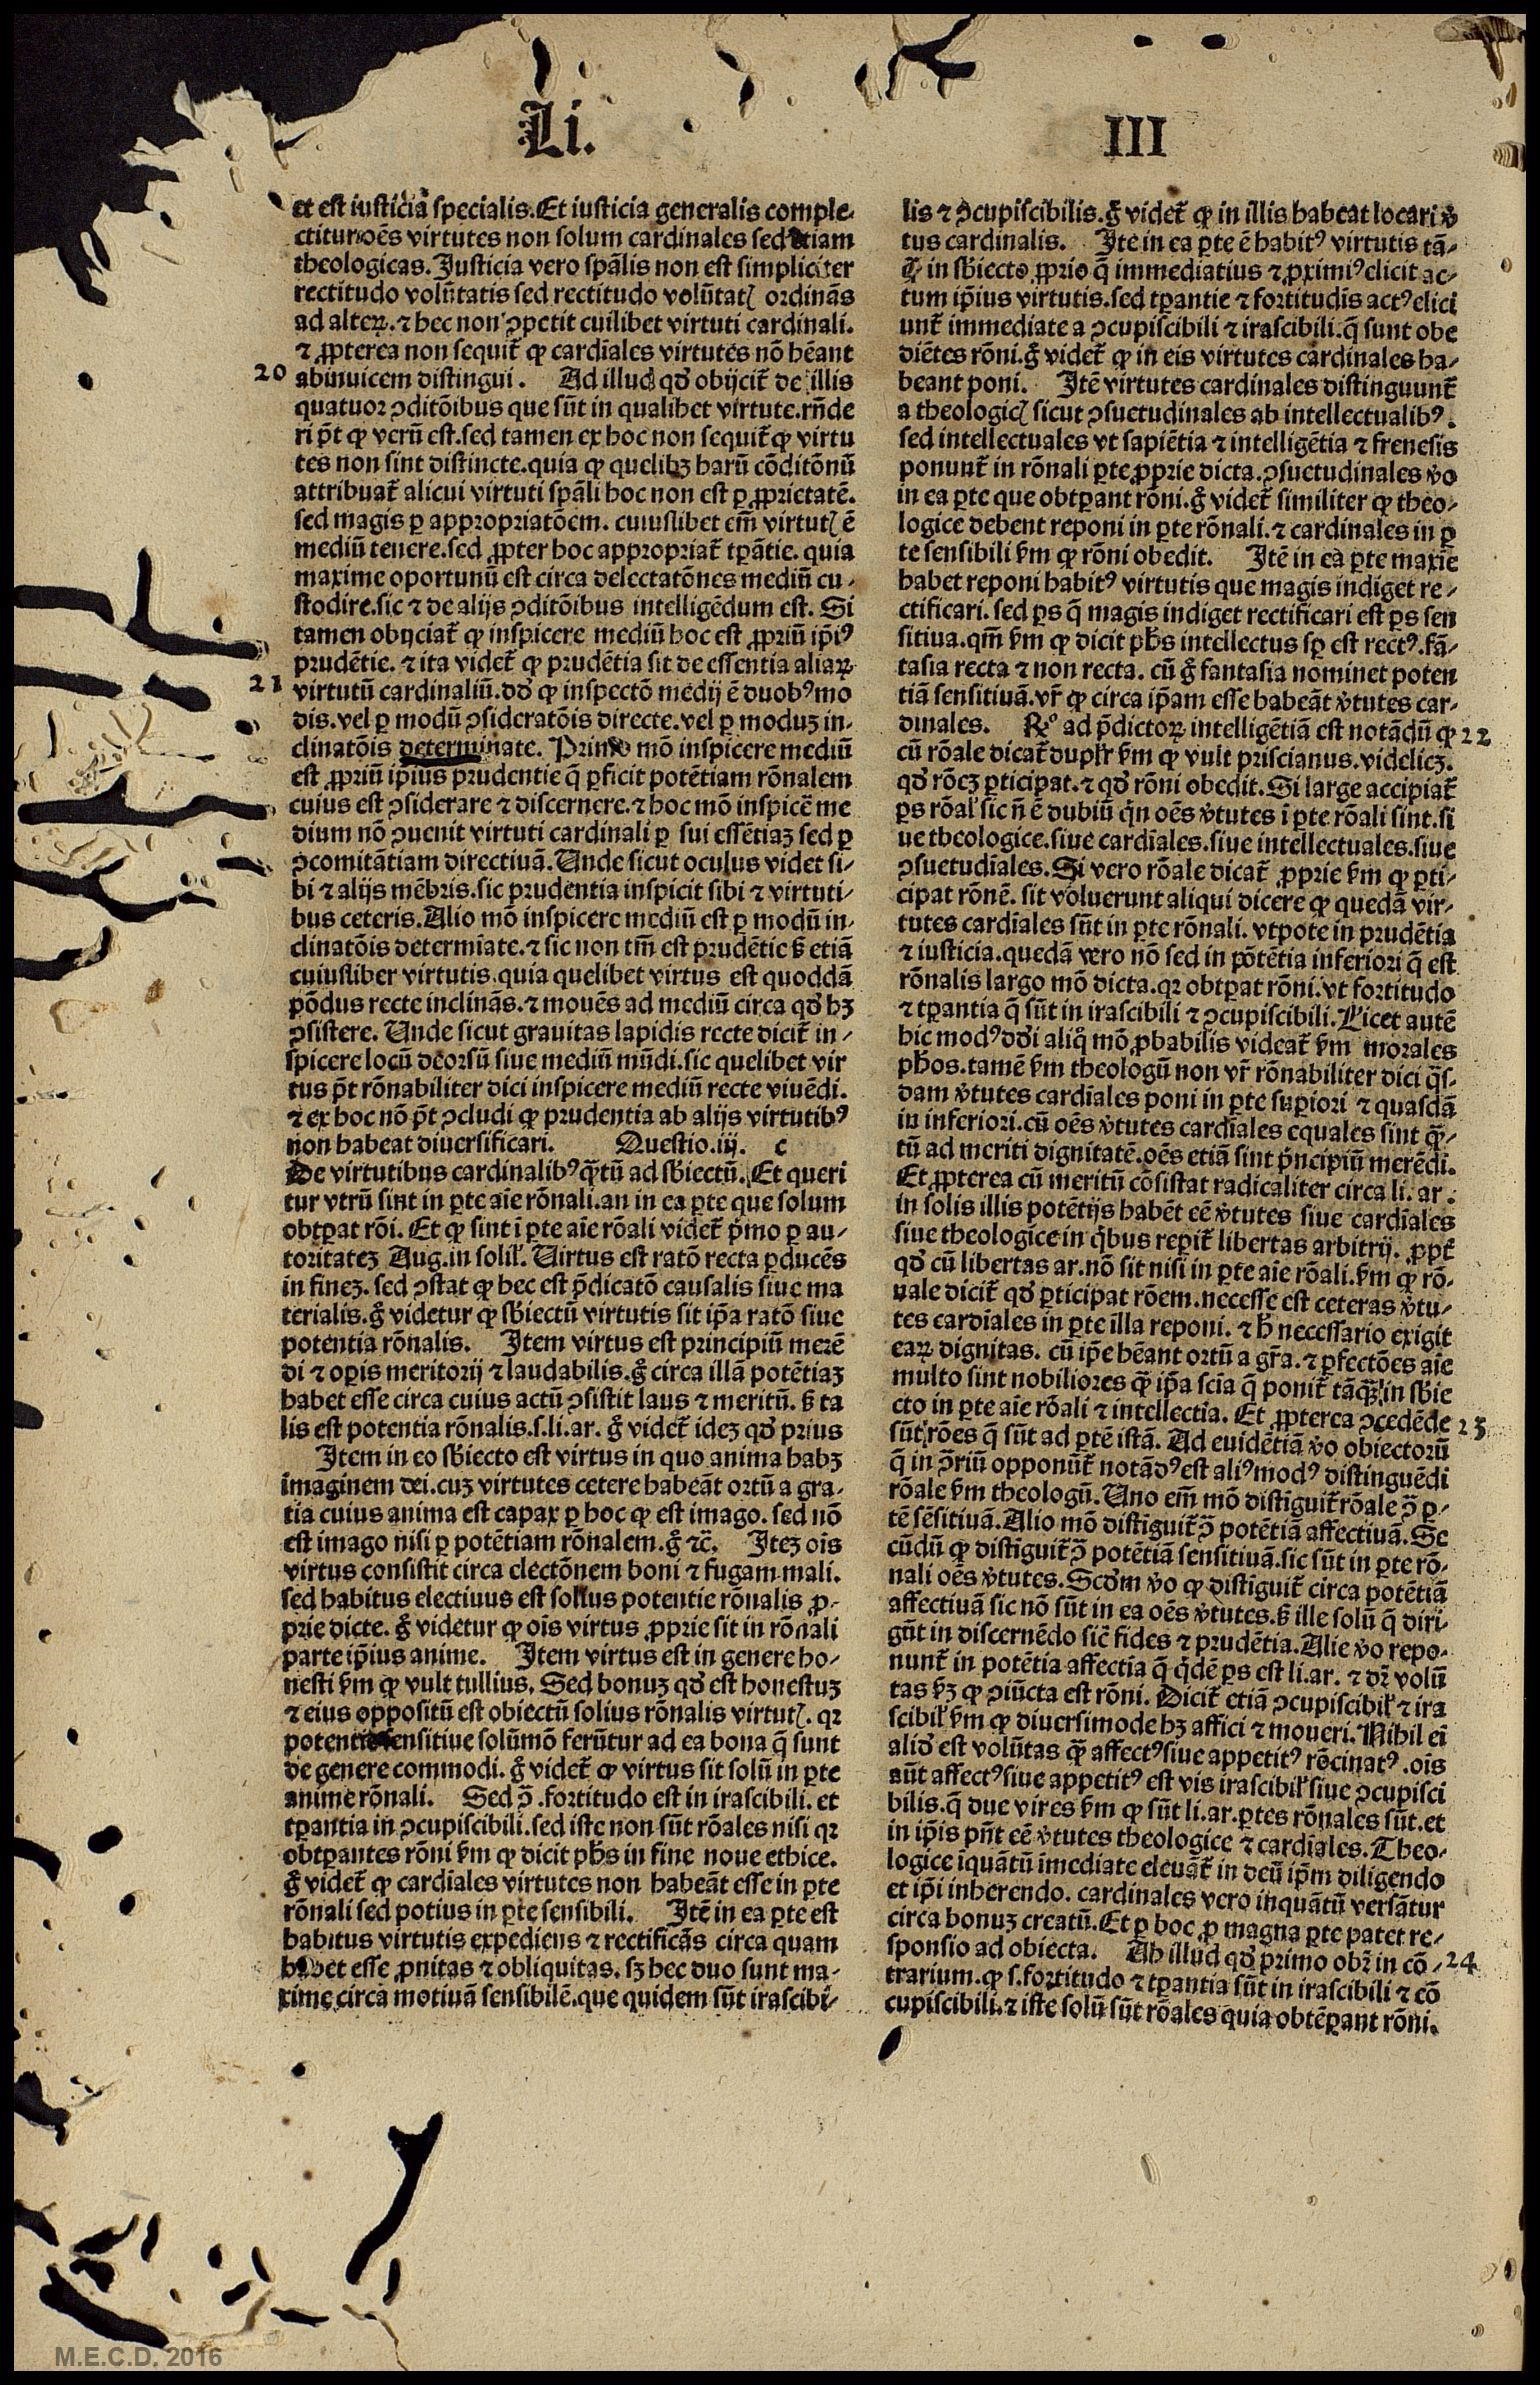 Li.
III
et est iusticia specialis. Et iusticia generalis comple-
ctitur oēs virtutes non solum cardinales sed etiam
theologicas. Iusticia vero spālis non est simpliciter
rectitudo volūtatis sed rectitudo volūtatꝭ ordinās
ad alteꝝ. ⁊ hec non ꝯpetit cuilibet virtuti cardinali.
⁊ ꝓpterea non sequit̃ ꝙ cardīales virtutes nō hēant
20 abinuicem distingui. Ad illud qđ obijcit̃ de illis
quatuor ꝯditōibus que sūt in qualibet virtute. rñde
ri p̄t ꝙ verū est. sed tamen ex hoc non sequit̃ ꝙ virtu
tes non sint distincte. quia ꝙ quelibꝫ harū cōditōnū
attribuat̃ alicui virtuti spāli hoc non est ꝑ ꝓprietatē.
sed magis ꝑ appropriatōem. cuiuslibet em̄ virtutꝭ ē
mediū tenere. sed ꝓpter hoc appropriat̃ tꝑātie. quia
maxime oportunū est circa delectatōnes mediū cu-
stodire. sic ⁊ de alijs ꝯditōibus intelligēdum est. Si
tamen obijciat̃ ꝙ inspicere mediū hoc est ꝓpriū ip̄iꝰ
prudētie. ⁊ ita videt̃ ꝙ prudētia sit de essentia aliaꝝ
21 virtutū cardinaliū. dđ ꝙ inspectō medij ē duobꝰ mo
dis. vel ꝑ modū ꝯsideratōis directe. vel ꝑ moduꝫ in-
clinatōis determinate. Primo mō inspicere mediū
est ꝓpriū ipsius prudentie q̄ ꝑficit potētiam rōnalem
cuius est ꝯsiderare ⁊ discernere. ⁊ hoc mō inspicē me
dium nō ꝯuenit virtuti cardinali ꝑ sui essētiaꝫ sed ꝑ
ꝯcomitātiam directiuā. Unde sicut oculus videt si-
bi ⁊ alijs mēbris. sic prudentia inspicit sibi ⁊ virtuti-
bus ceteris. Alio mō inspicere mediū est ꝑ modū in-
clinatōis determiate. ⁊ sic non tm̄ est prudētie sꝫ etiā
cuiusliber virtutis. quia quelibet virtus est quoddā
pōdus recte inclinās. ⁊ mouēs ad mediū circa qđ hꝫ
ꝯsistere. Unde sicut grauitas lapidis recte dicit̃ in-
spicere locū deorsū siue mediū mūdi. sic quelibet vir
tus p̄t rōnabiliter dici inspicere mediū recte viuēdi.
⁊ ex hoc nō p̄t ꝯcludi ꝙ prudentia ab alijs virtutibꝰ
non habeat diuersificari. Questio.iij. c
De virtutibus cardinalibꝰ q̄tū ad sb̄iectū. Et queri
tur vtrū sint in ꝑte aīe rōnali. an in ea ꝑte que solum
obtꝑat rōi. Et ꝙ sint ī ꝑte aīe rōali videt̃ p̄mo ꝑ au-
toritateꝫ Aug. in solil̓. Uirtus est ratō recta ꝑducēs
in fineꝫ. sed ꝯstat ꝙ hec est p̄dicatō causalis siue ma
terialis. g̊ videtur ꝙ sb̄iectū virtutis sit ip̄a ratō siue
potentia rōnalis. Item virtus est principiū merē
di ⁊ oꝑis meritorij ⁊ laudabilis. g̊ circa illā potētiaꝫ
habet esse circa cuius actū ꝯsistit laus ⁊ meritū. sꝫ ta
lis est potentia rōnalis. s. li. ar. g̊ videt̃ ideꝫ qđ prius
Item in eo sb̄iecto est virtus in quo anima habꝫ
imaginem dei. cuꝫ virtutes cetere habeāt ortū a gra-
tia cuius anima est capax ꝑ hoc ꝙ est imago. sed nō
est imago nisi ꝑ potētiam rōnalem. g̊ ⁊c̄. Iteꝫ oīs
virtus consistit circa electōnem boni ⁊ fugam mali.
sed habitus electiuus est solius potentie rōnalis ꝓ-
prie dicte. g̊ videtur ꝙ oīs virtus ꝓprie sit in rōnali
parte ip̄ius anime. Item virtus est in genere ho-
nesti ẜm ꝙ vult tullius. Sed bonuꝫ qđ est honestuꝫ
⁊ eius oppositū est obiectū solius rōnalis virtutꝭ. qꝛ
potentie sensitiue solūmō ferūtur ad ea bona q̄ sunt
de genere commodi. g̊ videt̃ ꝙ virtus sit solū in ꝑte
anime rōnali. Sed ꝯ̄. fortitudo est in irascibili. et
tꝑantia in ꝯcupiscibili. sed iste non sūt rōales nisi qꝛ
obtꝑantes rōni ẜm ꝙ dicit ph̄s in fine noue ethice.
g̊ videt̃ ꝙ cardīales virtutes non habeāt esse in ꝑte
rōnali sed potius in ꝑte sensibili. Itē in ea ꝑte est
habitus virtutis expediens ⁊ rectificās circa quam
habet esse ꝓnitas ⁊ obliquitas. sꝫ hec duo sunt ma-
xime circa motiuā sensibilē. que quidem sūt irascibi-
lis ⁊ ꝯcupiscibilis. g̊ videt̃ ꝙ in illis habeat locari v̓
tus cardinalis. Itē in ea ꝑte ē habitꝰ virtutis tā-
ꝙ̄ in sb̄iecto ꝓprio q̄ immediatius ⁊ ꝓximiꝰ elicit ac-
tum ip̄ius virtutis. sed tꝑantie ⁊ fortitudīs actꝰ elici
unt̃ immediate a ꝯcupiscibili ⁊ irascibili. q̄ sunt obe
diētes rōni. g̊ videt̃ ꝙ in eis virtutes cardinales ha-
beant poni. Itē virtutes cardinales distinguunt̃
a theologicꝭ sicut ꝯsuetudinales ab intellectualibꝰ.
sed intellectuales vt sapiētia ⁊ intelligētia ⁊ frenesis
ponunt̃ in rōnali ꝑte ꝓprie dicta. ꝯsuetudinales v̓o
in ea ꝑte que obtꝑant rōni. g̊ videt̃ similiter ꝙ theo-
logice debent reponi in ꝑte rōnali. ⁊ cardinales in ꝑ
te sensibili ẜm ꝙ rōni obedit. Itē in ea ꝑte maxīe
habet reponi habitꝰ virtutis que magis indiget re-
ctificari. sed ꝑs q̄ magis indiget rectificari est ꝑs sen
sitiua. qm̄ ẜm ꝙ dicit ph̄s intellectus sꝑ est rectꝰ. fā-
tasia recta ⁊ non recta. cū g̊ fantasia nominet poten
tiā sensitiuā. vr̄ ꝙ circa ip̄am esse habeāt v̓tutes car-
dinales. Rº ad p̄dictoꝝ intelligētiā est notādū ꝙ 22
cū rōale dicat̃ duplr̄ ẜm ꝙ vult priscianus. videlicꝫ.
qđ rōeꝫ ꝑticipat. ⁊ qđ rōni obedit. Si large accipiat̃
ꝑs rōal̓ sic n̄ ē dubiū q̇n oēs v̓tutes ī ꝑte rōali sint. si
ue theologice. siue cardīales. siue intellectuales. siue
ꝯsuetudīales. Si vero rōale dicat̃ ꝓprie ẜm ꝙ ꝑti-
cipat rōnē. sit voluerunt aliqui dicere ꝙ quedā vir-
tutes cardīales sūt in ꝑte rōnali. vtpote in prudētia
⁊ iusticia. quedā vero nō sed in pōtētia inferiori q̄ est
rōnalis largo mō dicta. qꝛ obtꝑat rōni. vt fortitudo
⁊ tꝑantia q̄ sūt in irascibili ⁊ ꝯcupiscibili. Licet autē
hic modꝰ dđi aliq̊ mō ꝓbabilis videat̃ ẜm morales
ph̄os. tamē ẜm theologū non vr̄ rōnabiliter dici q̄s-
dam v̓tutes cardīales poni in ꝑte suꝑiori ⁊ quasdā
in inferiori. cū oēs v̓tutes cardīales equales sint q̄-
tū ad meriti dignitatē. oēs etiā sint p̄ncipiū merēdi.
Et ꝓpterea cū meritū cōsistat radicaliter circa li. ar.
in solis illis potētijs habēt eē v̓tutes siue cardīales
siue theologice in q̇bus reꝑit̃ libertas arbitrij. ꝓpt̃
qđ cū libertas ar. nō sit nisi in ꝑte aīe rōali. ẜm ꝙ rō-
nale dicit̃ qđ ꝑticipat rōem. necesse est ceteras v̓tu-
tes cardīales in ꝑte illa reponi. ⁊ h̄ necessario exigit
eaꝝ dignitas. cū ip̄e hēant ortū a gr̄a. ⁊ ꝑfectōes aīe
multo sint nobiliores ꝙ̄ ip̄a scīa q̄ ponit̃ tāꝙ̄ in sb̄ie
cto in ꝑte aīe rōali ⁊ intellectia. Et ꝓpterea ꝯcedēde
sūt rōes q̄ sūt ad ꝑtē istā. Ad euidētiā v̓o obiectorū 23
q̄ in ꝯ̄riū opponūt̃ notādꝰ est aliꝰ modꝰ distinguēdi
rōale ẜm theologū. Uno em̄ mō distiguit̃ rōale ꝯ̄ ꝑ-
tē sēsitiuā. Alio mō distiguit̃ ꝯ̄ potētiā affectiuā. Se
cūdū ꝙ distiguit̃ ꝯ̄ potētiā sensitiuā. sic sūt in ꝑte rō-
nali oēs v̓tutes. Scđm v̓o ꝙ distiguit̃ circa potētiā
affectiuā sic nō sūt in ea oēs v̓tutes. sꝫ ille solū q̄ diri-
gūt in discernēdo sic̄ fides ⁊ prudētia. Alie v̓o repo-
nunt̃ in potētia affectīa q̄ q̇dē ꝑs est li. ar. ⁊ dꝛ̄ volū
tas ẜꝫ ꝙ ꝯiūcta est rōni. Dicit̃ etiā ꝯcupiscibil̓ ⁊ ira
scibil̓ ẜm ꝙ diuersimode hꝫ affici ⁊ moueri. Nihil eī
aliđ est volūtas ꝙ̄ affectꝰ siue appetitꝰ rōcinatꝰ. oīs
aūt affectꝰ siue appetitꝰ est vis irascibil̓ siue ꝯcupisci
bilis. q̄ due vires ẜm ꝙ sūt li. ar. ꝑtes rōnales sūt. et
in ip̄is pn̄t eē v̓tutes theologice ⁊ cardīales. Theo-
logice īquātū īmediate eleuāt̃ in deū ip̄m diligendo
et ip̄i inherendo. cardinales vero inquātū versātur
circa bonuꝫ creatū. Et ꝑ hoc ꝓ magna ꝑte patet re-
sponsio ad obiecta. Ab illud qđ primo obꝛ̄ in cō- 24
trarium. ꝙ s. fortitudo ⁊ tꝑantia sūt in irascibili ⁊ cō
cupiscibili. ⁊ iste solū sūt rōales quia obtēꝑant rōni.
M.E.C.D. 2016